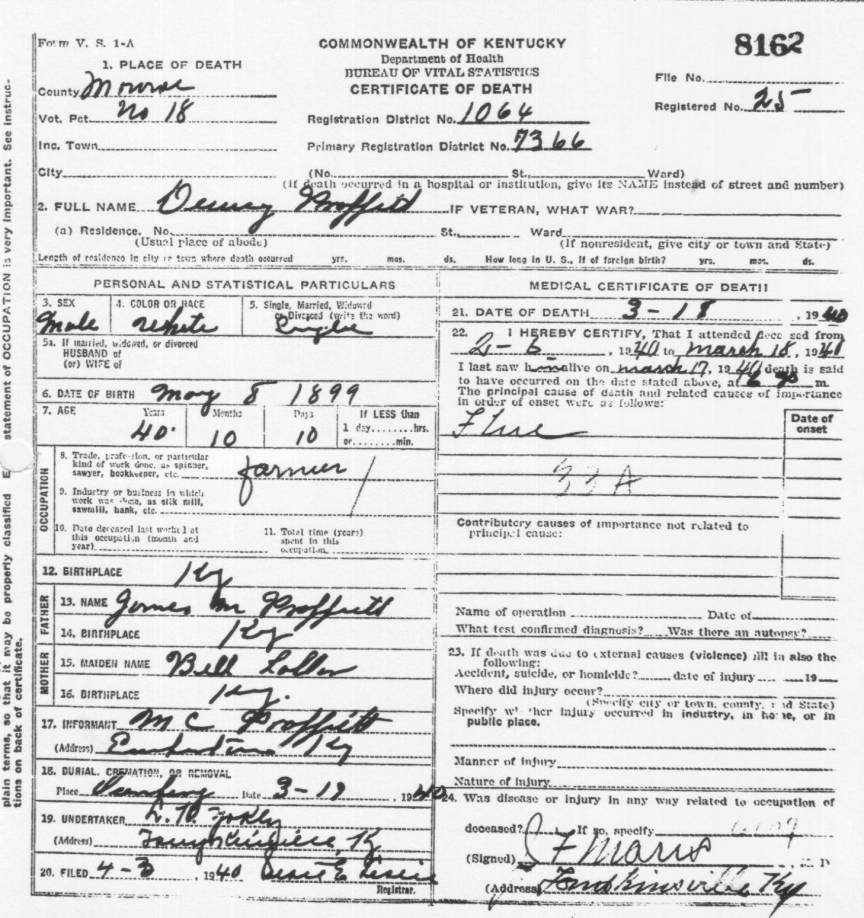 Form V. S. 1-A
COMMONWEALTH OF KENTUCKY
Department of Health
BUREAU OF VITAL STATISTICS
CERTIFICATE OF DEATH
8162
File No.
Registered No. 25
1. PLACE OF DEATH
County Monroe
Vot. Pct. No 18
Registration District No. 1064
Inc. Town
Primary Registration District No. 7366
City (No. St., Ward)
(If death occurred in a hospital or institution, give its NAME instead of street and number)
2. FULL NAME Dewey Proffitt IF VETERAN, WHAT WAR?
(a) Residence. No. St., Ward
(Usual place of abode) (If nonresident, give city or town and State)
Length of residence in city or town where death occurred yrs. mos. ds. How long in U. S., if of foreign birth? yrs. mos. ds.
PERSONAL AND STATISTICAL PARTICULARS
3. SEX Male
4. COLOR OR RACE White
5. Single, Married, Widowed or Divorced (write the word) Single
5a. If married, widowed, or divorced
HUSBAND of
(or) WIFE of
6. DATE OF BIRTH May 8 1899
7. AGE Years Months Days If LESS than
40 10 10 1 day hrs.
or min.
OCCUPATION
8. Trade, profession, or particular
kind of work done, as spinner,
sawyer, bookkeeper, etc. farmer
9. Industry or business in which
work was done, as silk mill,
sawmill, bank, etc.
10. Date deceased last worked at
this occupation (month and
year)
11. Total time (years)
spent in this
occupation
12. BIRTHPLACE Ky
FATHER
13. NAME James M Proffitt
14. BIRTHPLACE Ky
MOTHER
15. MAIDEN NAME Bell
16. BIRTHPLACE Ky.
17. INFORMANT M C Proffitt
(Address) Ky
18. BURIAL, CREMATION, OR REMOVAL
Place Date 3-19 1940
19. UNDERTAKER
(Address) Tompkinsville, Ky
20. FILED 4-3 1940
Registrar.
MEDICAL CERTIFICATE OF DEATH
21. DATE OF DEATH 3-18, 1940
22. I HEREBY CERTIFY, That I attended deceased from
2-6, 1940 to March 18, 1940
I last saw him alive on March 17, 1940 death is said
to have occurred on the date stated above, at 6 m.
The principal cause of death and related causes of importance
in order of onset were as follows:
Date of
onset
Flue
33A
Contributory causes of importance not related to
principal cause:
Name of operation Date of
What test confirmed diagnosis? Was there an autopsy?
23. If death was due to external causes (violence) fill in also the
following:
Accident, suicide, or homicide? date of injury 19
Where did injury occur?
(Specify city or town, county, and State)
Specify whether injury occurred in industry, in home, or in
public place.
Manner of injury
Nature of injury
24. Was disease or injury in any way related to occupation of
deceased? If so, specify
(Signed) M. D
(Address) Tompkinsville Ky
statement of OCCUPATION is very important. See instruc-
plain terms, so that it may be properly classified. E
tions on back of certificate.